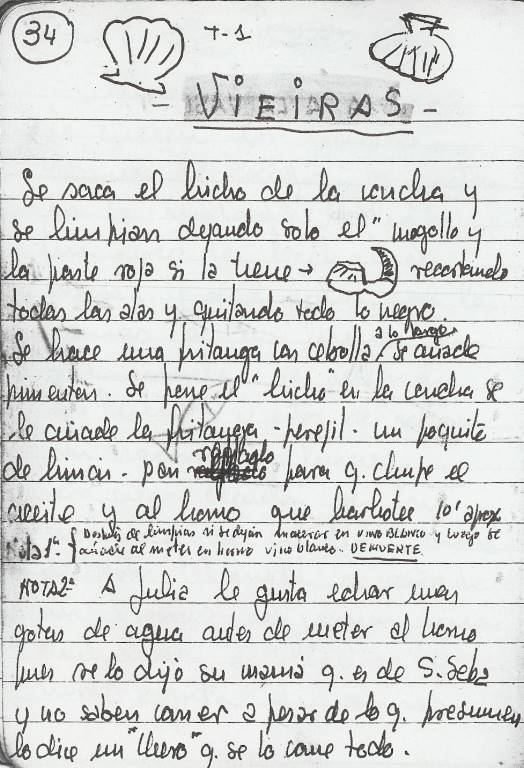 34
T-1
- VIEIRAS -
Se saca el bicho de la concha y
se limpian dejando solo el "mogollo y
la parte roja si la tiene → recortando
todas las alas y quitando todo lo negro.
Se hace una fritanga con cebolla a lo largo, se añade
pimenton. Se pone el "bicho" en la concha se
le añade la fritanga - perejil - un poquito
de limon - pan rayado para q. chupe el
aceite y al horno que borbotee 10' aprox
Nota 1ª { Despues de limpias si se dejan macerar en VINO BLANCO y luego se
añade al meter en horno vino blanco - DEMUENTE.
NOTA 2ª A Julia le gusta echar unas
gotas de agua antes de meter al horno
pues se lo dijo su mamá q. es de S. Sebª
y no saben comer a pesar de lo q. presumen
lo dice un "lluro" q. se lo come todo.